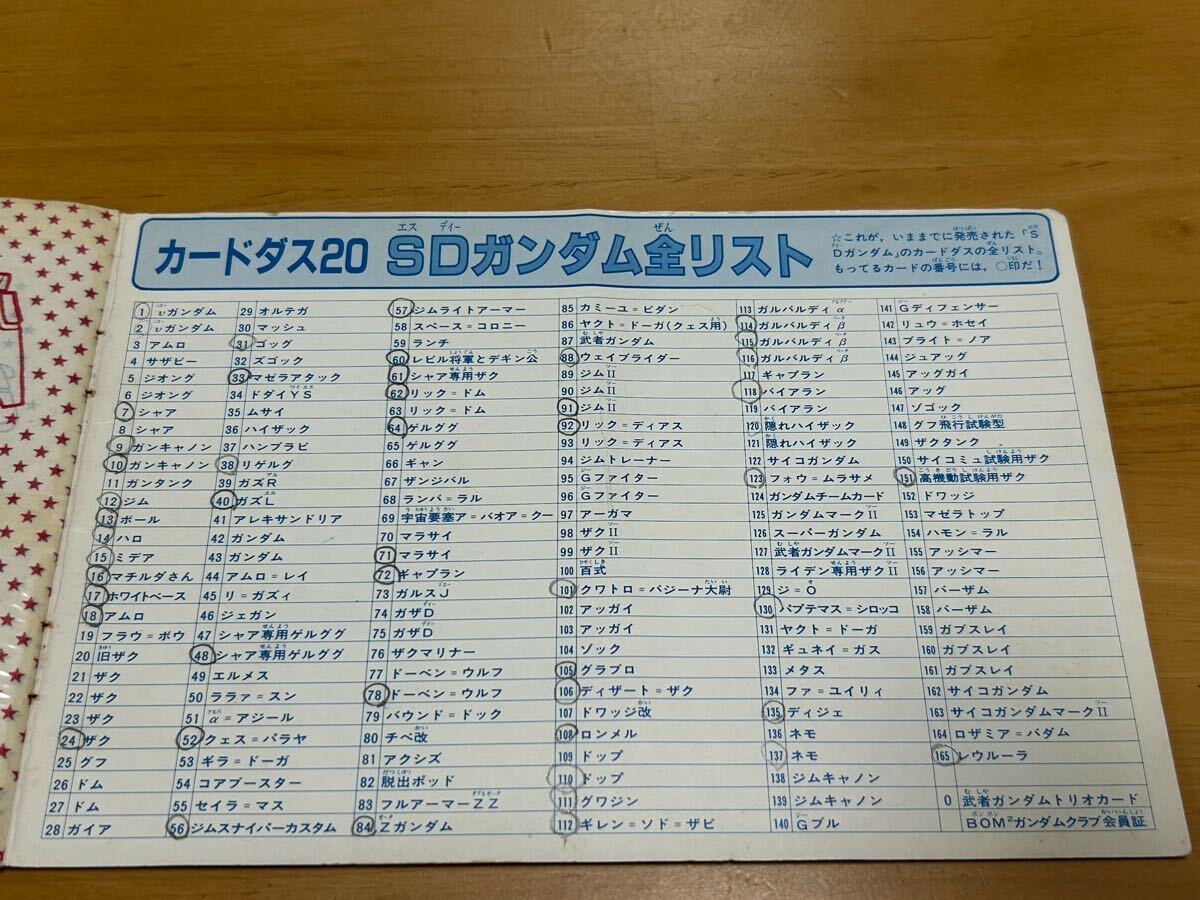 カードダス20 SDガンダム全リスト
☆これが、いままでに発売された「S
Dガンダム」のカードダスの全リスト。
もってるカードの番号には、○印だ!
1 νガンダム
2 νガンダム
3 アムロ
4 サザビー
5 ジオング
6 ジオング
7 シャア
8 シャア
9 ガンキャノン
10 ガンキャノン
11 ガンタンク
12 ジム
13 ボール
14 ハロ
15 ミデア
16 マチルダさん
17 ホワイトベース
18 アムロ
19 フラウ=ボウ
20 旧ザク
21 ザク
22 ザク
23 ザク
24 ザク
25 グフ
26 ドム
27 ドム
28 ガイア
29 オルテガ
30 マッシュ
31 ゴッグ
32 ズゴック
33 マゼラアタック
34 ドダイYS
35 ムサイ
36 ハイザック
37 ハンブラビ
38 リゲルグ
39 ガズR
40 ガズL
41 アレキサンドリア
42 ガンダム
43 ガンダム
44 アムロ=レイ
45 リ=ガズィ
46 ジェガン
47 シャア専用ゲルググ
48 シャア専用ゲルググ
49 エルメス
50 ララァ=スン
51 α=アジール
52 クェス=パラヤ
53 ギラ=ドーガ
54 コアブースター
55 セイラ=マス
56 ジムスナイパーカスタム
57 ジムライトアーマー
58 スペース=コロニー
59 ランチ
60 レビル将軍とデギン公
61 シャア専用ザク
62 リック=ドム
63 リック=ドム
64 ゲルググ
65 ゲルググ
66 ギャン
67 ザンジバル
68 ランバ=ラル
69 宇宙要塞ア=バオア=クー
70 マラサイ
71 マラサイ
72 ギャプラン
73 ガルスJ
74 ガザD
75 ガザD
76 ザクマリナー
77 ドーベン=ウルフ
78 ドーベン=ウルフ
79 バウンド=ドック
80 チベ改
81 アクシズ
82 脱出ポッド
83 フルアーマーZZ
84 Zガンダム
85 カミーユ=ビダン
86 ヤクト=ドーガ(クェス用)
87 武者ガンダム
88 ウェイブライダー
89 ジムII
90 ジムII
91 ジムII
92 リック=ディアス
93 リック=ディアス
94 ジムトレーナー
95 Gファイター
96 Gファイター
97 アーガマ
98 ザクII
99 ザクII
100 百式
101 クワトロ=バジーナ大尉
102 アッガイ
103 アッガイ
104 ゾック
105 グラブロ
106 ディザート=ザク
107 ドワッジ改
108 ロンメル
109 ドップ
110 ドップ
111 グワジン
112 ギレン=ソド=ザビ
113 ガルバルディα
114 ガルバルディβ
115 ガルバルディβ
116 ガルバルディβ
117 ギャプラン
118 バイアラン
119 バイアラン
120 隠れハイザック
121 隠れハイザック
122 サイコガンダム
123 フォウ=ムラサメ
124 ガンダムチームカード
125 ガンダムマークII
126 スーパーガンダム
127 武者ガンダムマークII
128 ライデン専用ザクII
129 ジ=O
130 パプテマス=シロッコ
131 ヤクト=ドーガ
132 ギュネイ=ガス
133 メタス
134 ファ=ユイリィ
135 ディジェ
136 ネモ
137 ネモ
138 ジムキャノン
139 ジムキャノン
140 Gブル
141 Gディフェンサー
142 リュウ=ホセイ
143 ブライト=ノア
144 ジュアッグ
145 アッグガイ
146 アッグ
147 ゾゴック
148 グフ飛行試験型
149 ザクタンク
150 サイコミュ試験用ザク
151 高機動試験用ザク
152 ドワッジ
153 マゼラトップ
154 ハモン=ラル
155 アッシマー
156 アッシマー
157 バーザム
158 バーザム
159 ガブスレイ
160 ガブスレイ
161 ガブスレイ
162 サイコガンダム
163 サイコガンダムマークII
164 ロザミア=バダム
165 レウルーラ
0 武者ガンダムトリオカード
BOM²ガンダムクラブ会員証